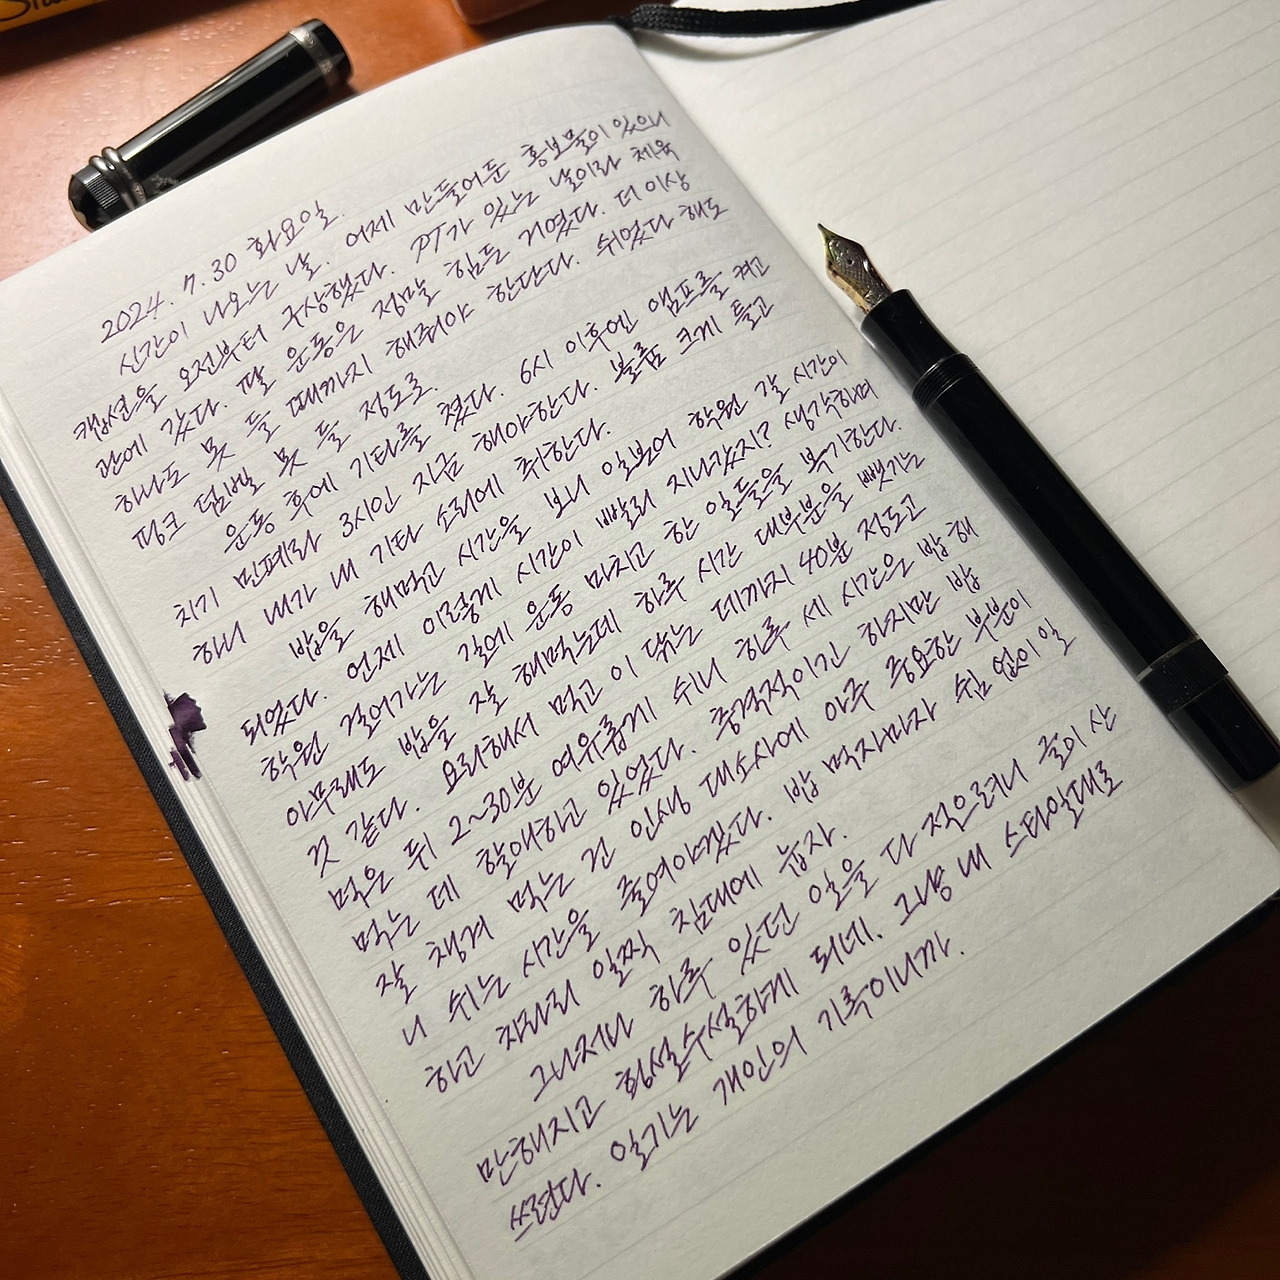 2024. 7. 30 화요일.
신간이 나오는 날. 어제 만들어둔 홍보물이 있으니
캡션을 오전부터 구상했다. PT가 있는 날이라 체육
관에 갔다. 팔 운동은 정말 힘든 거였다. 더 이상
하나도 못 들 때까지 해줘야 한단다. 쉬었다 해도
핑크 덤벨 못 들 정도로.
운동 후에 기타를 쳤다. 6시 이후엔 앰프를 켜고
치기 민폐라 3시인 지금 해야한다. 볼륨 크게 틀고
하니 내가 내 기타 소리에 취한다.
밥을 해먹고 시간을 보니 일본어 학원 갈 시간이
되었다. 언제 이렇게 시간이 빨리 지나갔지? 생각하며
학원 걸어가는 길에 운동 마치고 한 일들을 복기한다.
아무래도 밥을 잘 해먹는데 하루 시간 대부분을 뺏기는
것 같다. 요리해서 먹고 이 닦는 데까지 40분 정도고
먹은 뒤 2~30분 여유롭게 쉬니 하루 세 시간을 밥 해
먹는 데 할애하고 있었다. 충격적이긴 하지만 밥
잘 챙겨 먹는 건 인생 대소사에 아주 중요한 부분이
니 쉬는 시간을 줄여야겠다. 밥 먹자마자 쉼 없이 일
하고 차라리 일찍 침대에 눕자.
그나저나 하루 있던 일을 다 적으려니 글이 산
만해지고 횡설수설하게 되네. 그냥 내 스타일대로
쓰련다. 일기는 개인의 기록이니까.